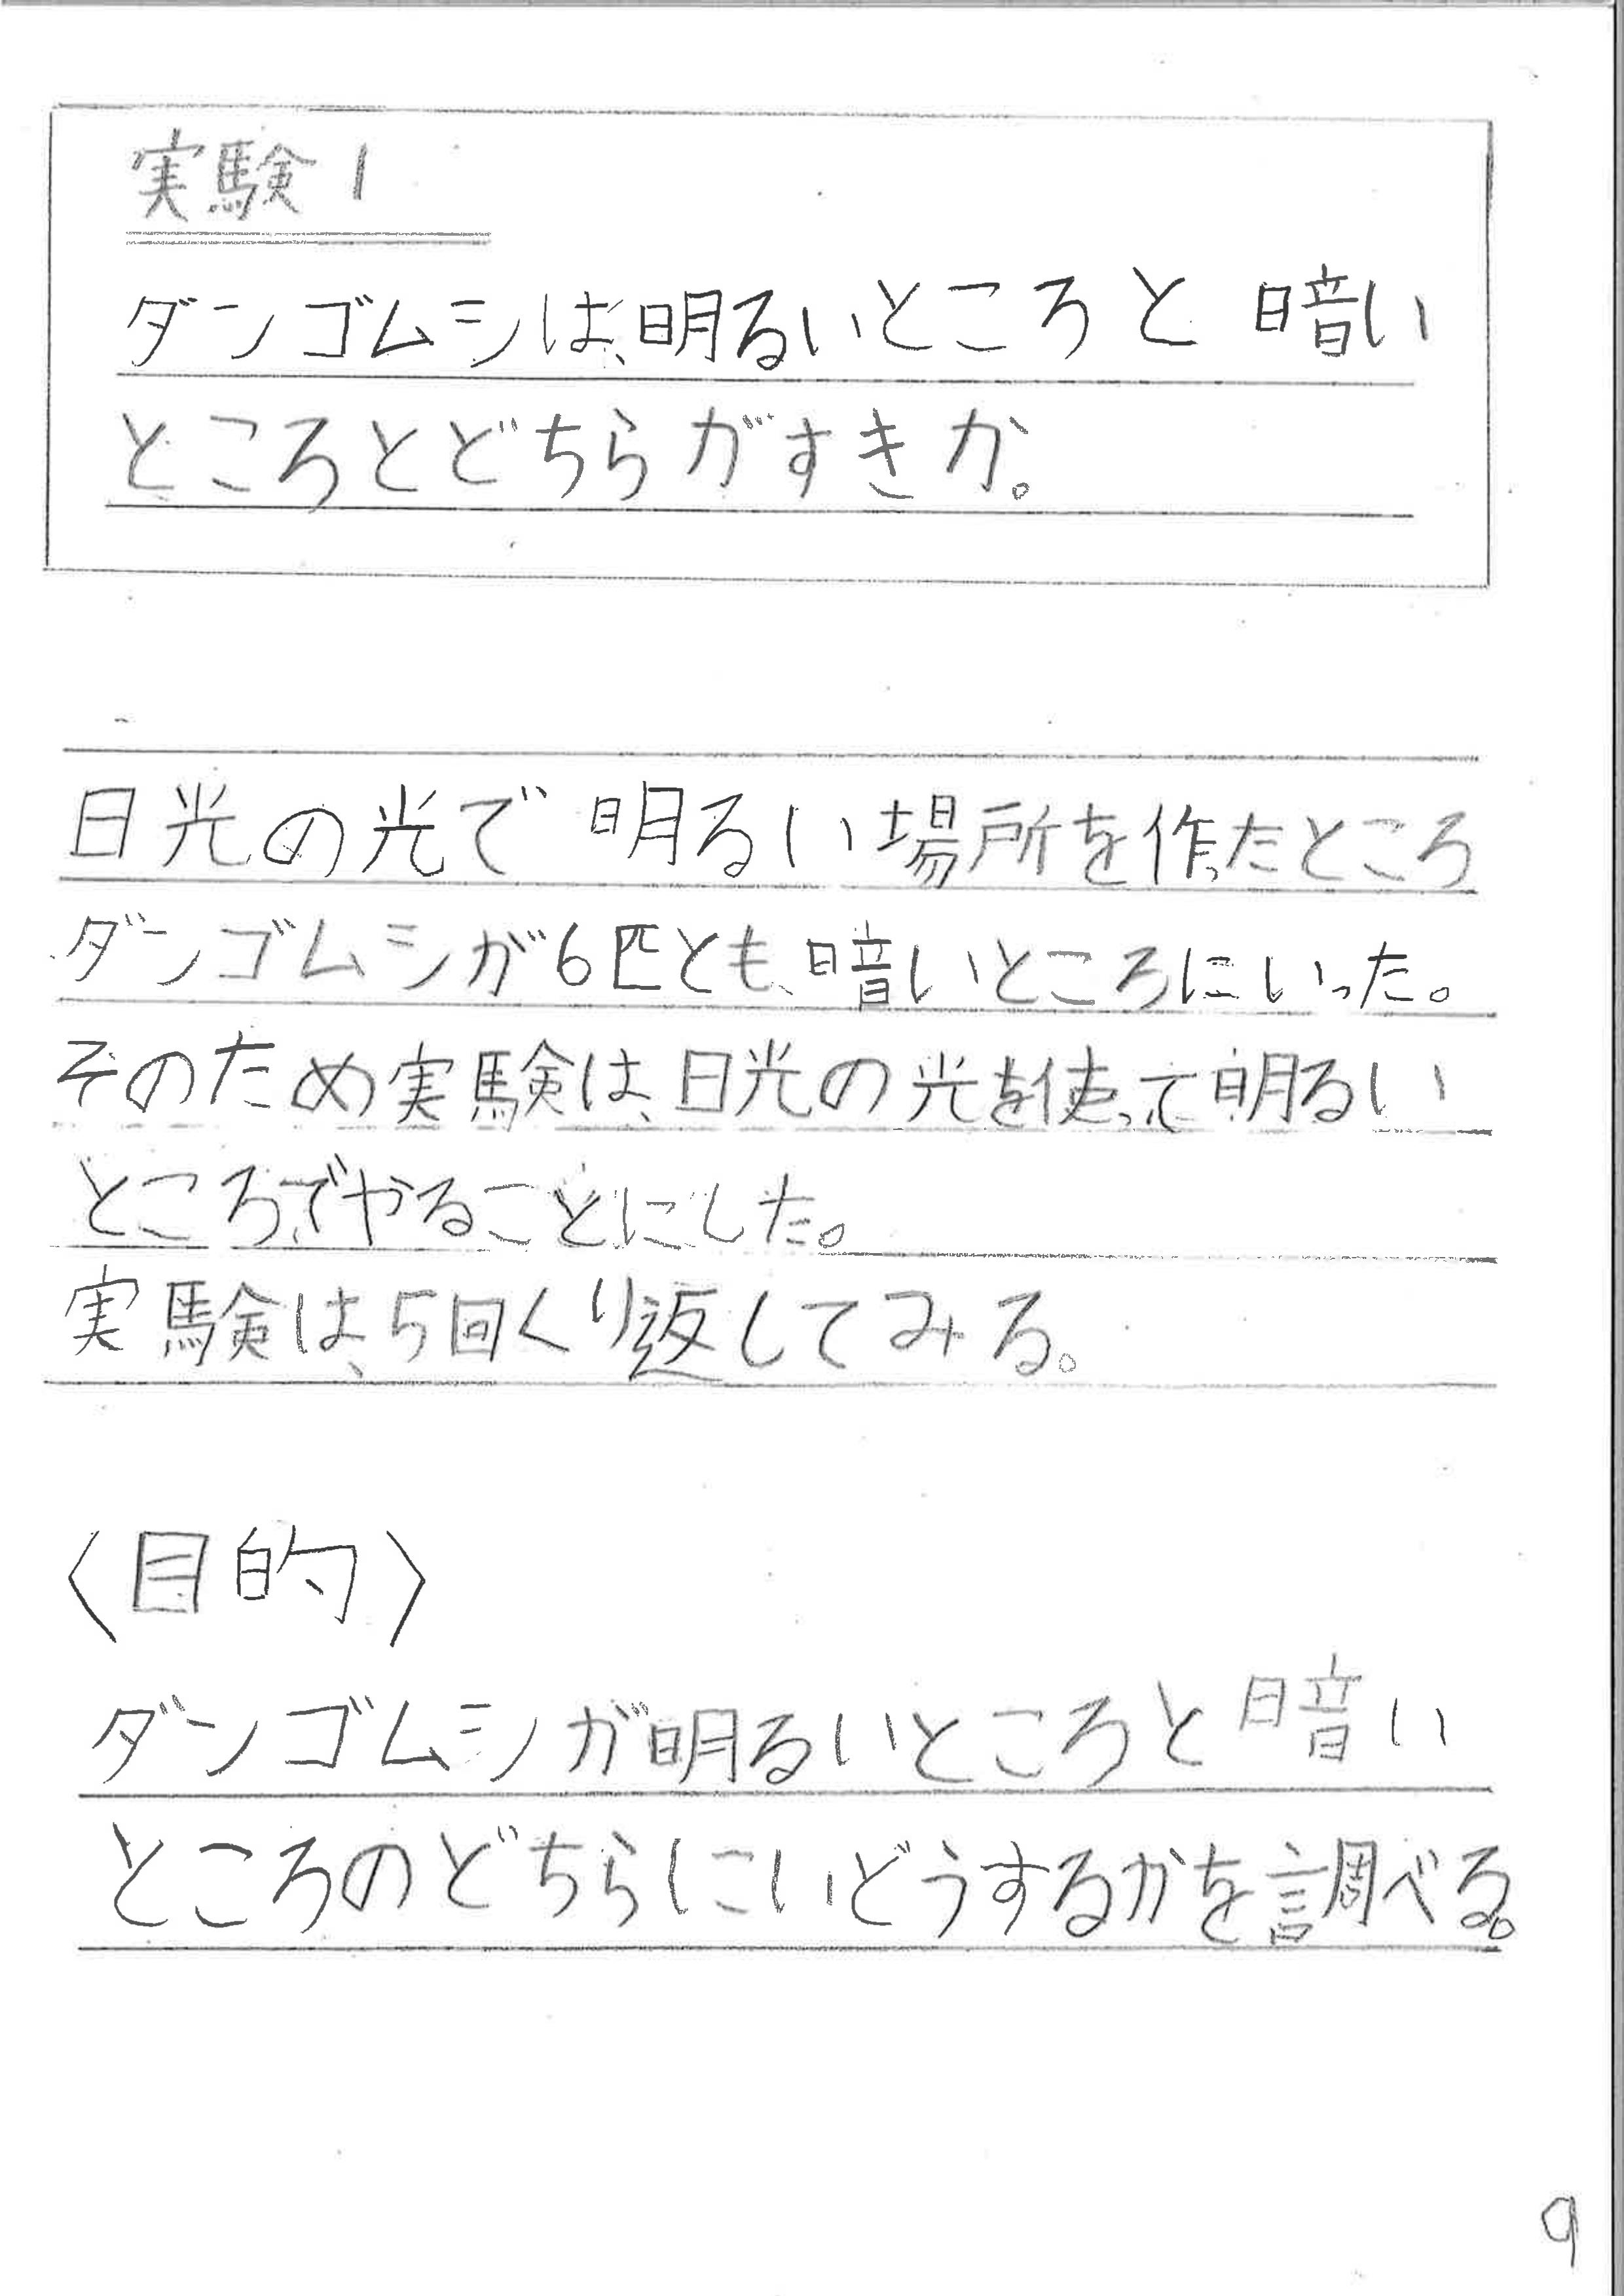 実験1
ダンゴムシは、明るいところと暗い
ところとどちらがすきか。
日光の光で明るい場所を作ったところ
ダンゴムシが6匹とも、暗いところにいった。
そのため実験は、日光の光を使って明るい
ところでやることにした。
実験は、5回くり返してみる。
〈目的〉
ダンゴムシが明るいところと暗い
ところのどちらにいどうするかを調べる。
9